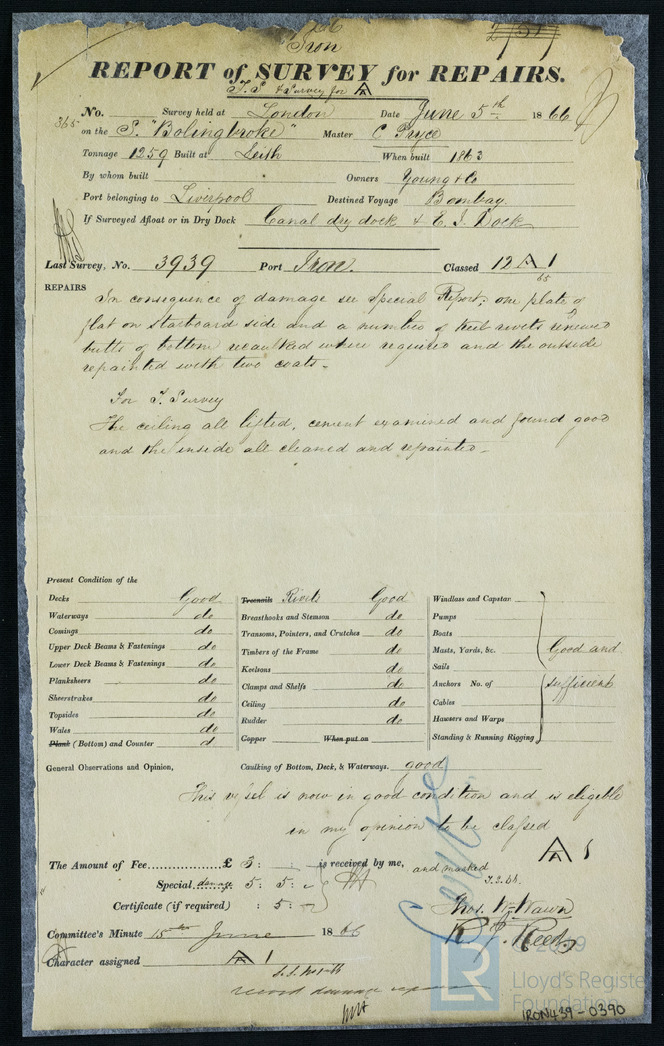 Iron
REPORT of SURVEY for REPAIRS.
& Survey for A
No. Survey held at London Date June 5th 1866
on the S. "Bolingbroke" Master C Pryce
Tonnage 1259 Built at Leith When built 1863
By whom built Owners Young & Co
Port belonging to Liverpool Destined Voyage Bombay
If Surveyed Afloat or in Dry Dock Canal dry dock & E. I. Dock
Last Survey, No. 3939 Port Iron. Classed 12 A 1
65
REPAIRS
In consequence of damage see Special Report; one plate of
flat on starboard side and a number of keel rivets renewed
butts of bottom recaulked where required and the outside
repainted with two coats.
For T. Survey
The ceiling all lifted, cement examined and found good
and the inside all cleaned and repainted.
Present Condition of the
Decks Good
Waterways do
Comings do
Upper Deck Beams & Fastenings do
Lower Deck Beams & Fastenings do
Planksheers do
Sheerstrakes do
Topsides do
Wales do
Plank (Bottom) and Counter d
Treenails Rivets Good
Breasthooks and Stemson do
Transoms, Pointers, and Crutches do
Timbers of the Frame do
Keelsons do
Clamps and Shelfs do
Ceiling do
Rudder do
Copper When put on
Windlass and Capstan
Pumps
Boats
Masts, Yards, &c. Good and
Sails
Anchors No. of sufficient
Cables
Hawsers and Warps
Standing & Running Rigging
General Observations and Opinion, Caulking of Bottom, Deck, & Waterways. good
This vessel is now in good condition and is eligible
in my opinion to be classed
A 1
The Amount of Fee £ 3 : is received by me, and marked
Special damage 5 : 5 : T.S. 66.
Certificate (if required) : 5 :
Thos. W. Wawn
Committee's Minute 15th June 1866 R J. Reed
Character assigned A 1
record damage repairs
2019
LR
Lloyd's Register
Foundation
IRON439-0390